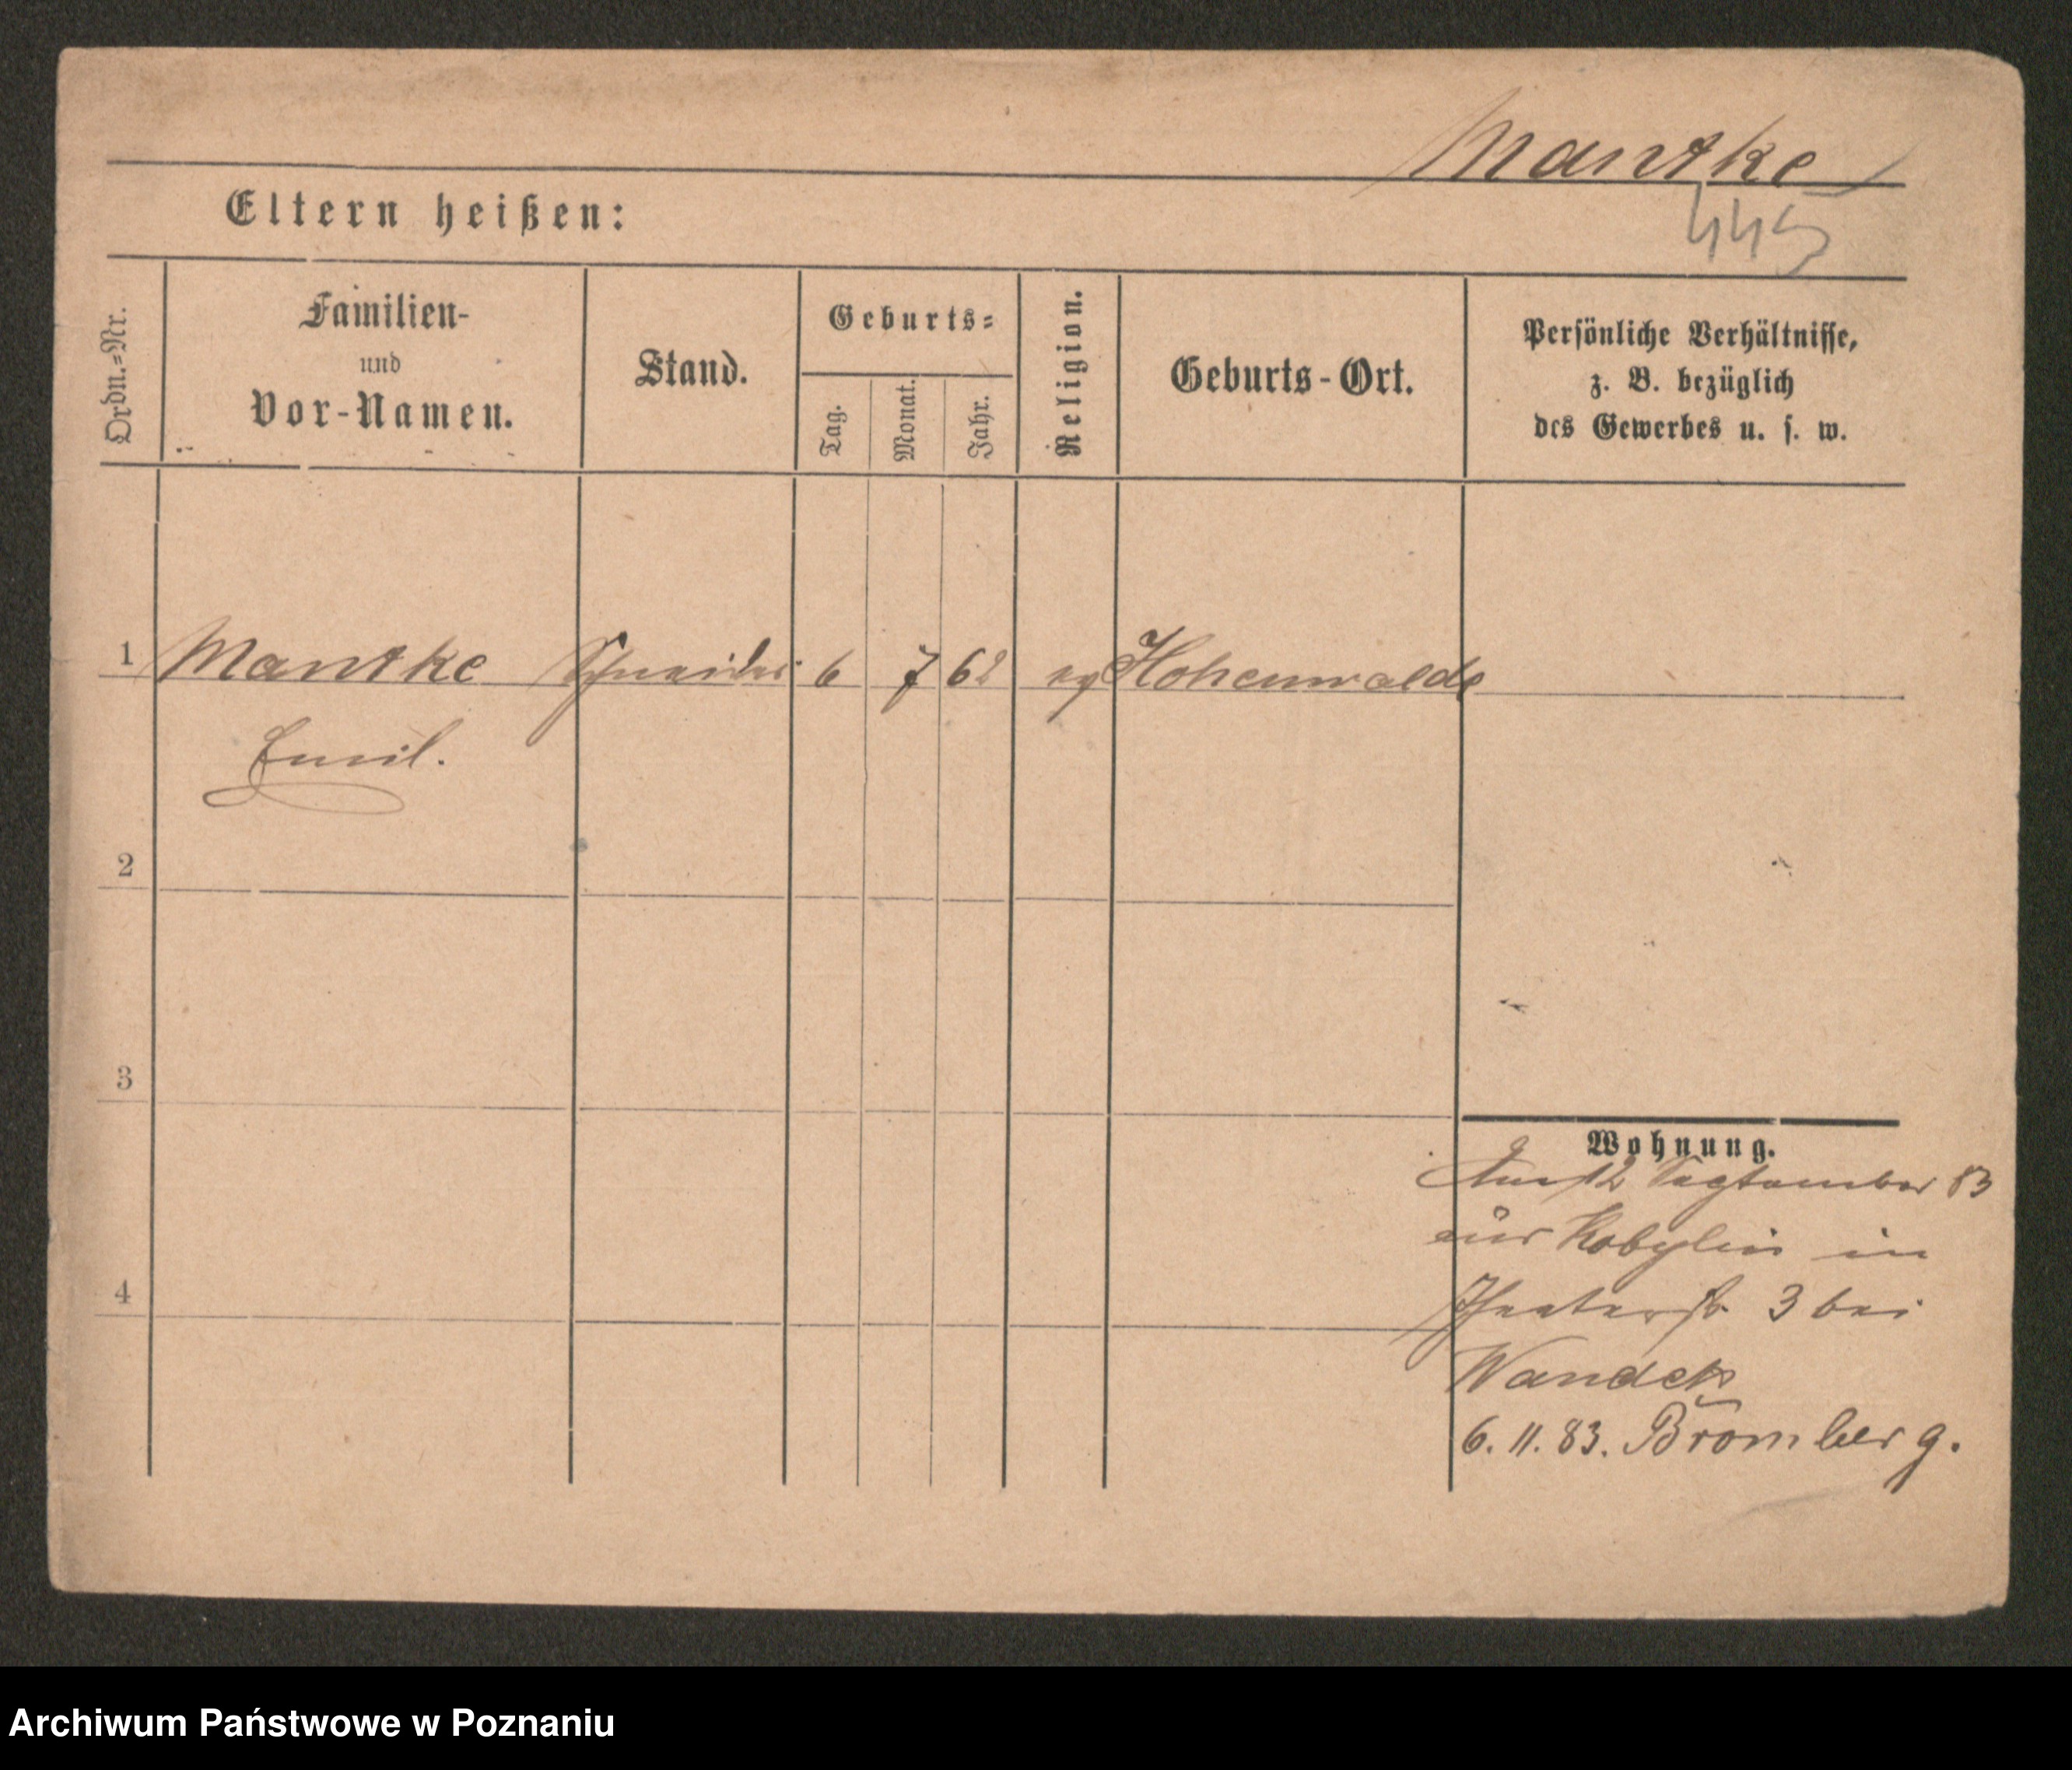 Mantke
445
Eltern heißen:
Ordn.-Nr.
Familien-
und
Vor-Namen.
Stand.
Geburts-
Tag.
Monat.
Jahr.
Religion.
Geburts-Ort.
Persönliche Verhältnisse,
z. B. bezüglich
des Gewerbes u. s. w.
1 Mantke Schneider 6 7 62 ev Hohenwalde
Emil.
2
3
Wohnung.
12 September 83
aus Kobylin in
4
Theaterstr 3 bei
Wandek
6. 11. 83. Bromberg.
Archiwum Państwowe w Poznaniu